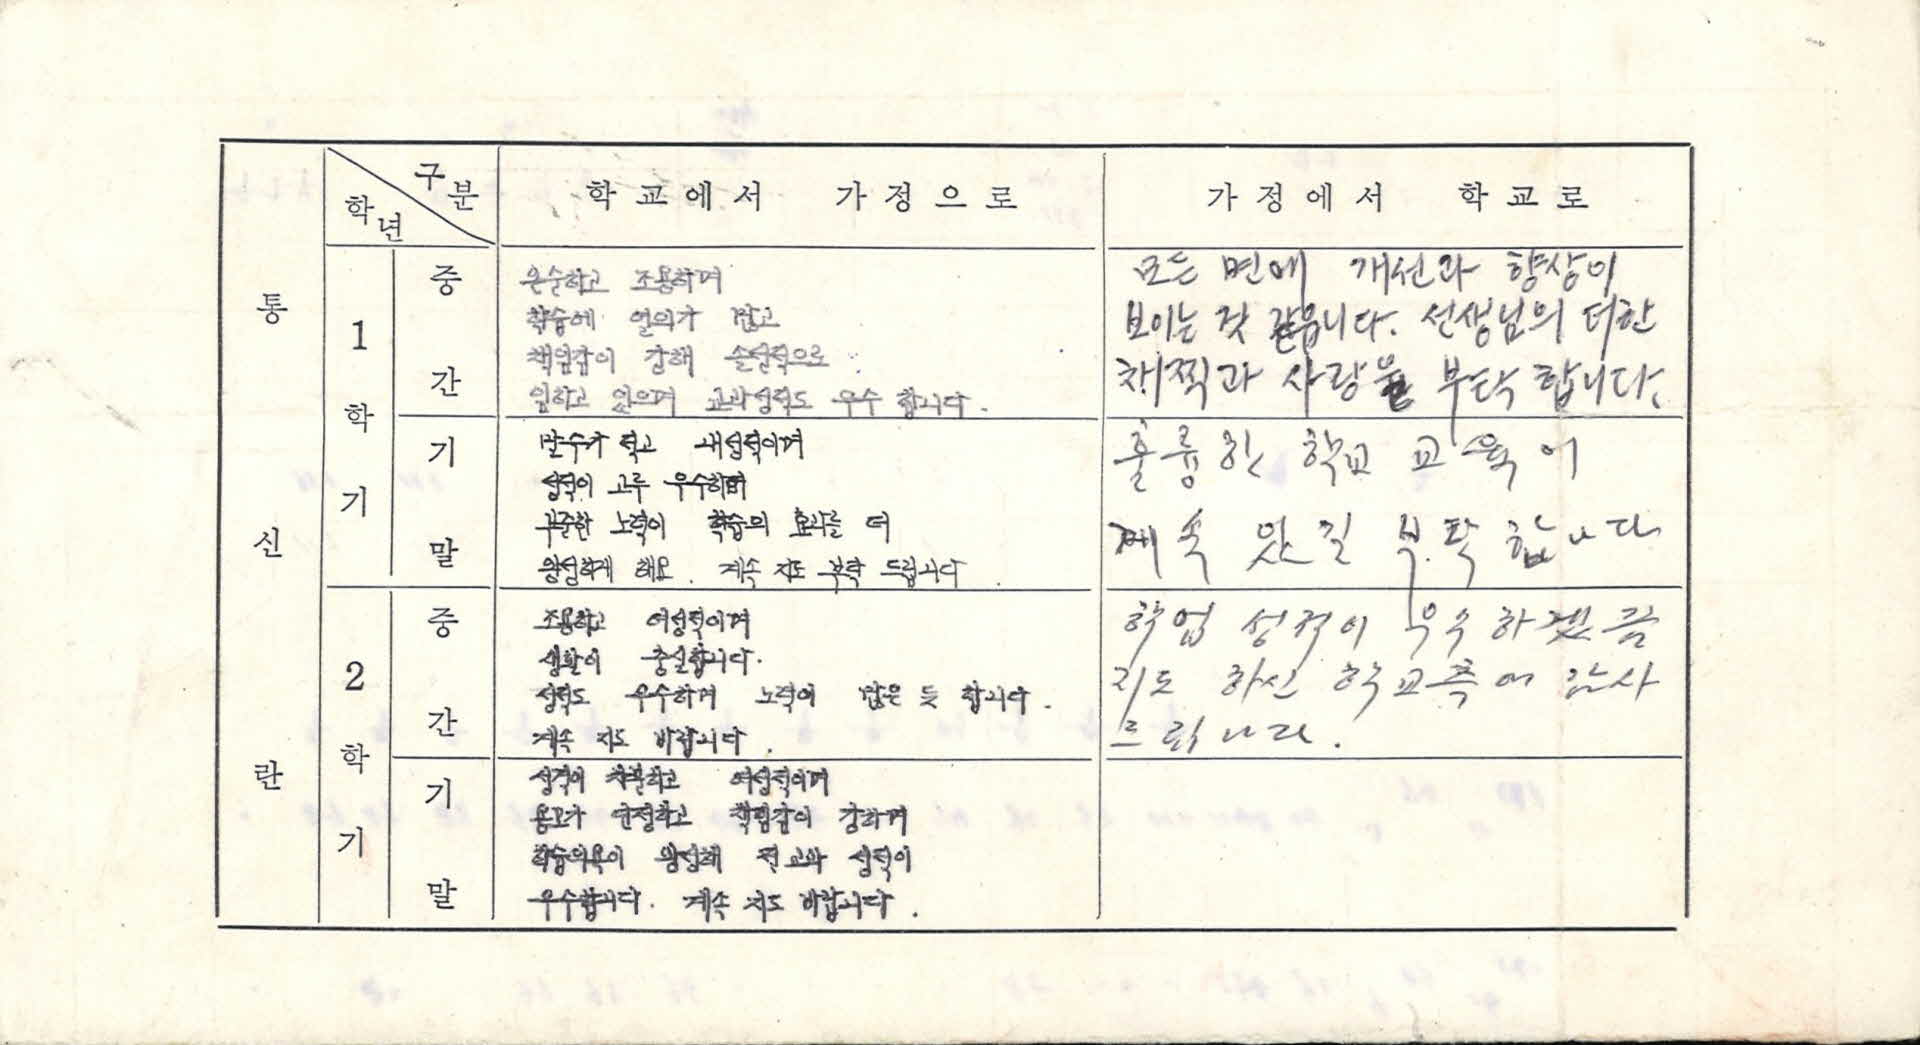 통신란
구분
학년
학교에서 가정으로
가정에서 학교로
1학기
중간
온순하고 조용하며
학습에 열의가 많고
책임감이 강해 솔선적으로
임하고 있으며 교과성적도 우수 합니다.
모든 면에 개선과 향상이
보이는 것 같읍니다. 선생님의 더한
채찍과 사랑을 부탁 합니다.
기말
말수가 적고 내성적이며
성적이 고루 우수하며
꾸준한 노력이 학습의 효과를 더
왕성하게 해요. 계속 지도 부탁 드립니다.
훌륭한 학교 교육이
계속 있길 부탁 합니다
2학기
중간
조용하고 여성적이며
생활이 충실합니다.
성적도 우수하며 노력이 많은 듯 합니다.
계속 지도 바랍니다.
학업 성적이 우수하겠끔
지도 하신 학교측에 감사
드립니다.
기말
성격이 차분하고 여성적이며
용모가 단정하고 책임감이 강하며
학습의욕이 왕성해 전 교과 성적이
우수합니다. 계속 지도 바랍니다.